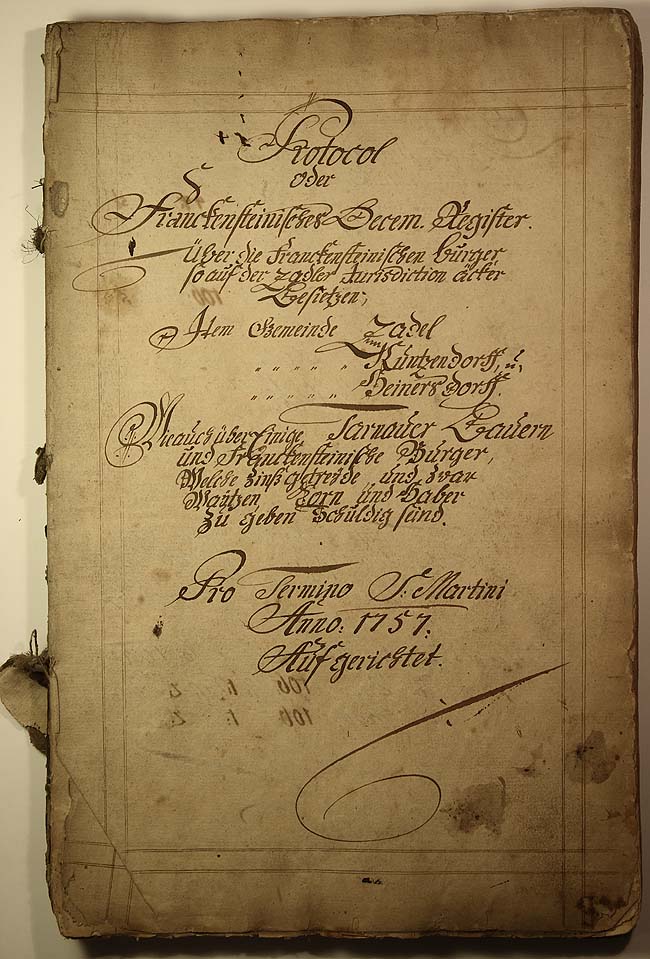 Protocol
oder
Franckensteinisches Decem. Register.
Über die Franckensteinischen burger,
so auf der zadler Jurisdiction äcker
Besietzen,
Item Gemeinde Zadel
" " " " " Kuntzendorff, u,
" " " " " Heinersdorff.
Wie auch über Einige Tarnauer Bauern
und Franckensteinische Burger,
Welche Zinß getreyde und zwar
Waitzen Korn und Haber
zu geben Schuldig seind.
Pro Termino S: Martini
Anno: 1757.
Auf gerichtet.